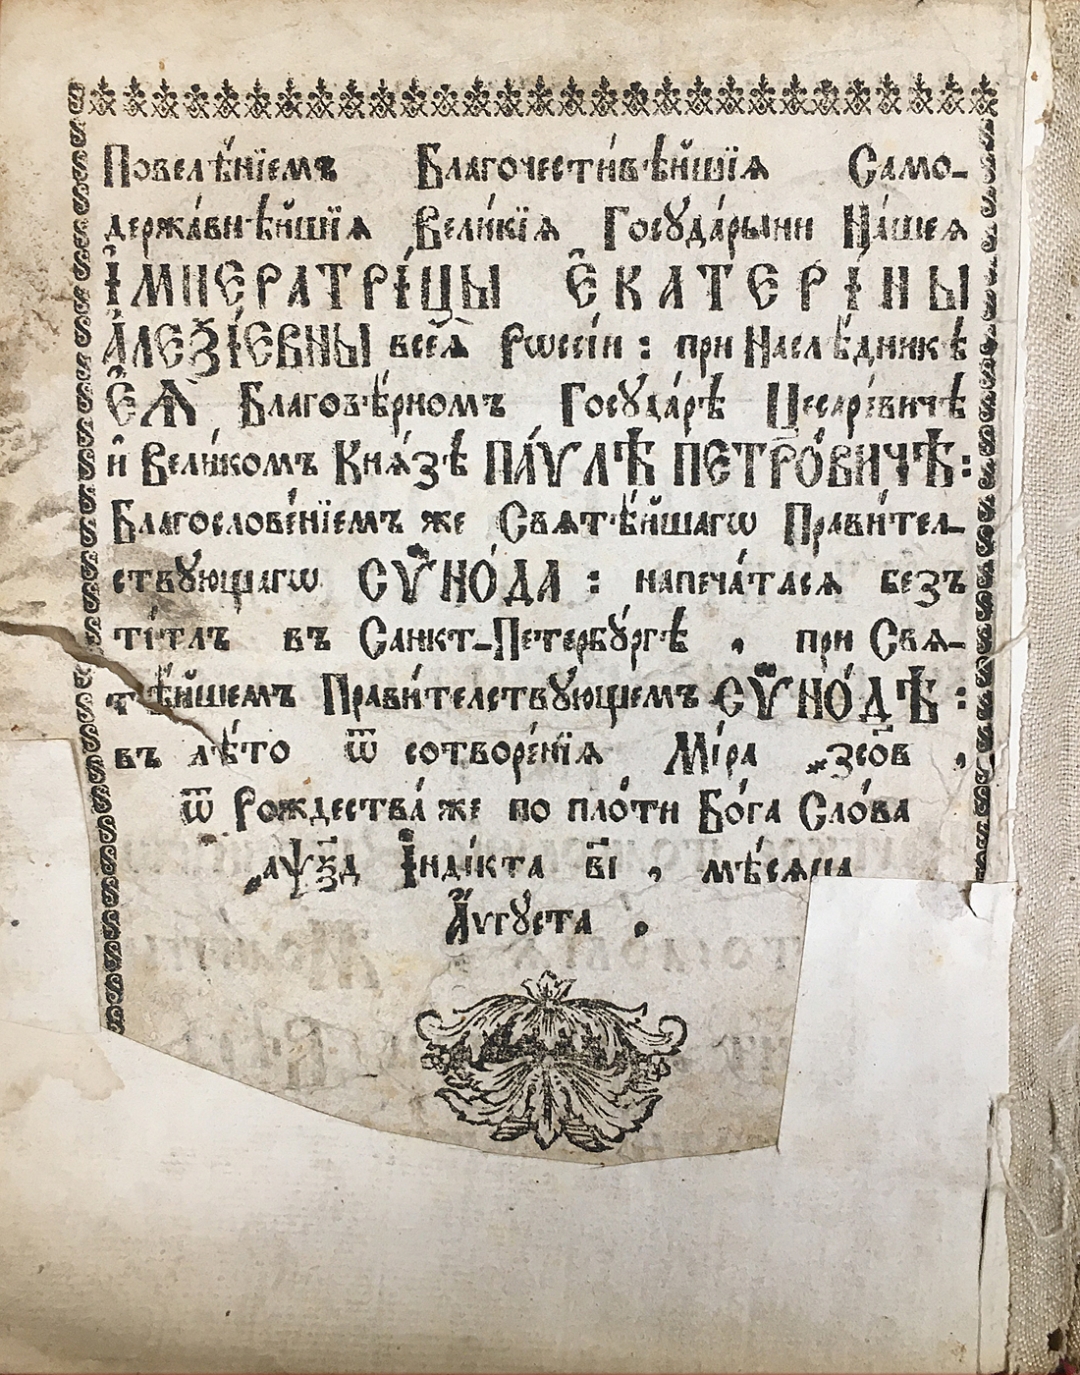 Повелѣ́нїемъ Благочести́вѣйшїя Само-
держа́внѣйшїя Вели́кїя Госꙋда́рыни На́шея
І҆МПЕРАТРІ́ЦЫ Е҆КАТЕРІ́НЫ
А҆ЛЕѮІ́ЕВНЫ всея̀ Рѡссі́и : при Наслѣ́дникѣ
Е҆Ѧ̀ Благовѣ́рномъ Госꙋда́рѣ Цесаре́вичѣ
и҆ Вели́комъ Кня́зѣ ПА́ѴЛѢ ПЕТРО́ВИЧѢ:
Благослове́нїемъ же Святѣ́йшагѡ Прави́тел-
ствꙋющагѡ СѴНО́ДА : напеча́тася без̾
ті́тлъ въ Санкт-Петербꙋ́ргѣ , при Свя-
тѣ́йшемъ Прави́телствꙋющемъ СѴНО́ДѢ :
въ лѣ́то ѿ сотворе́нїя Мі́ра ҂зсо҃в ,
ѿ Рождества́ же по пло́ти Бо́га Сло́ва
҂аѱѯ҃д І҆нді́кта в҃і , мѣ́сяца
А҆́ѵгꙋста .